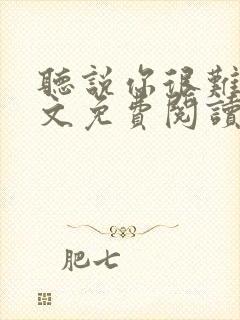 聽說你很難
文免費閱讀
肥七